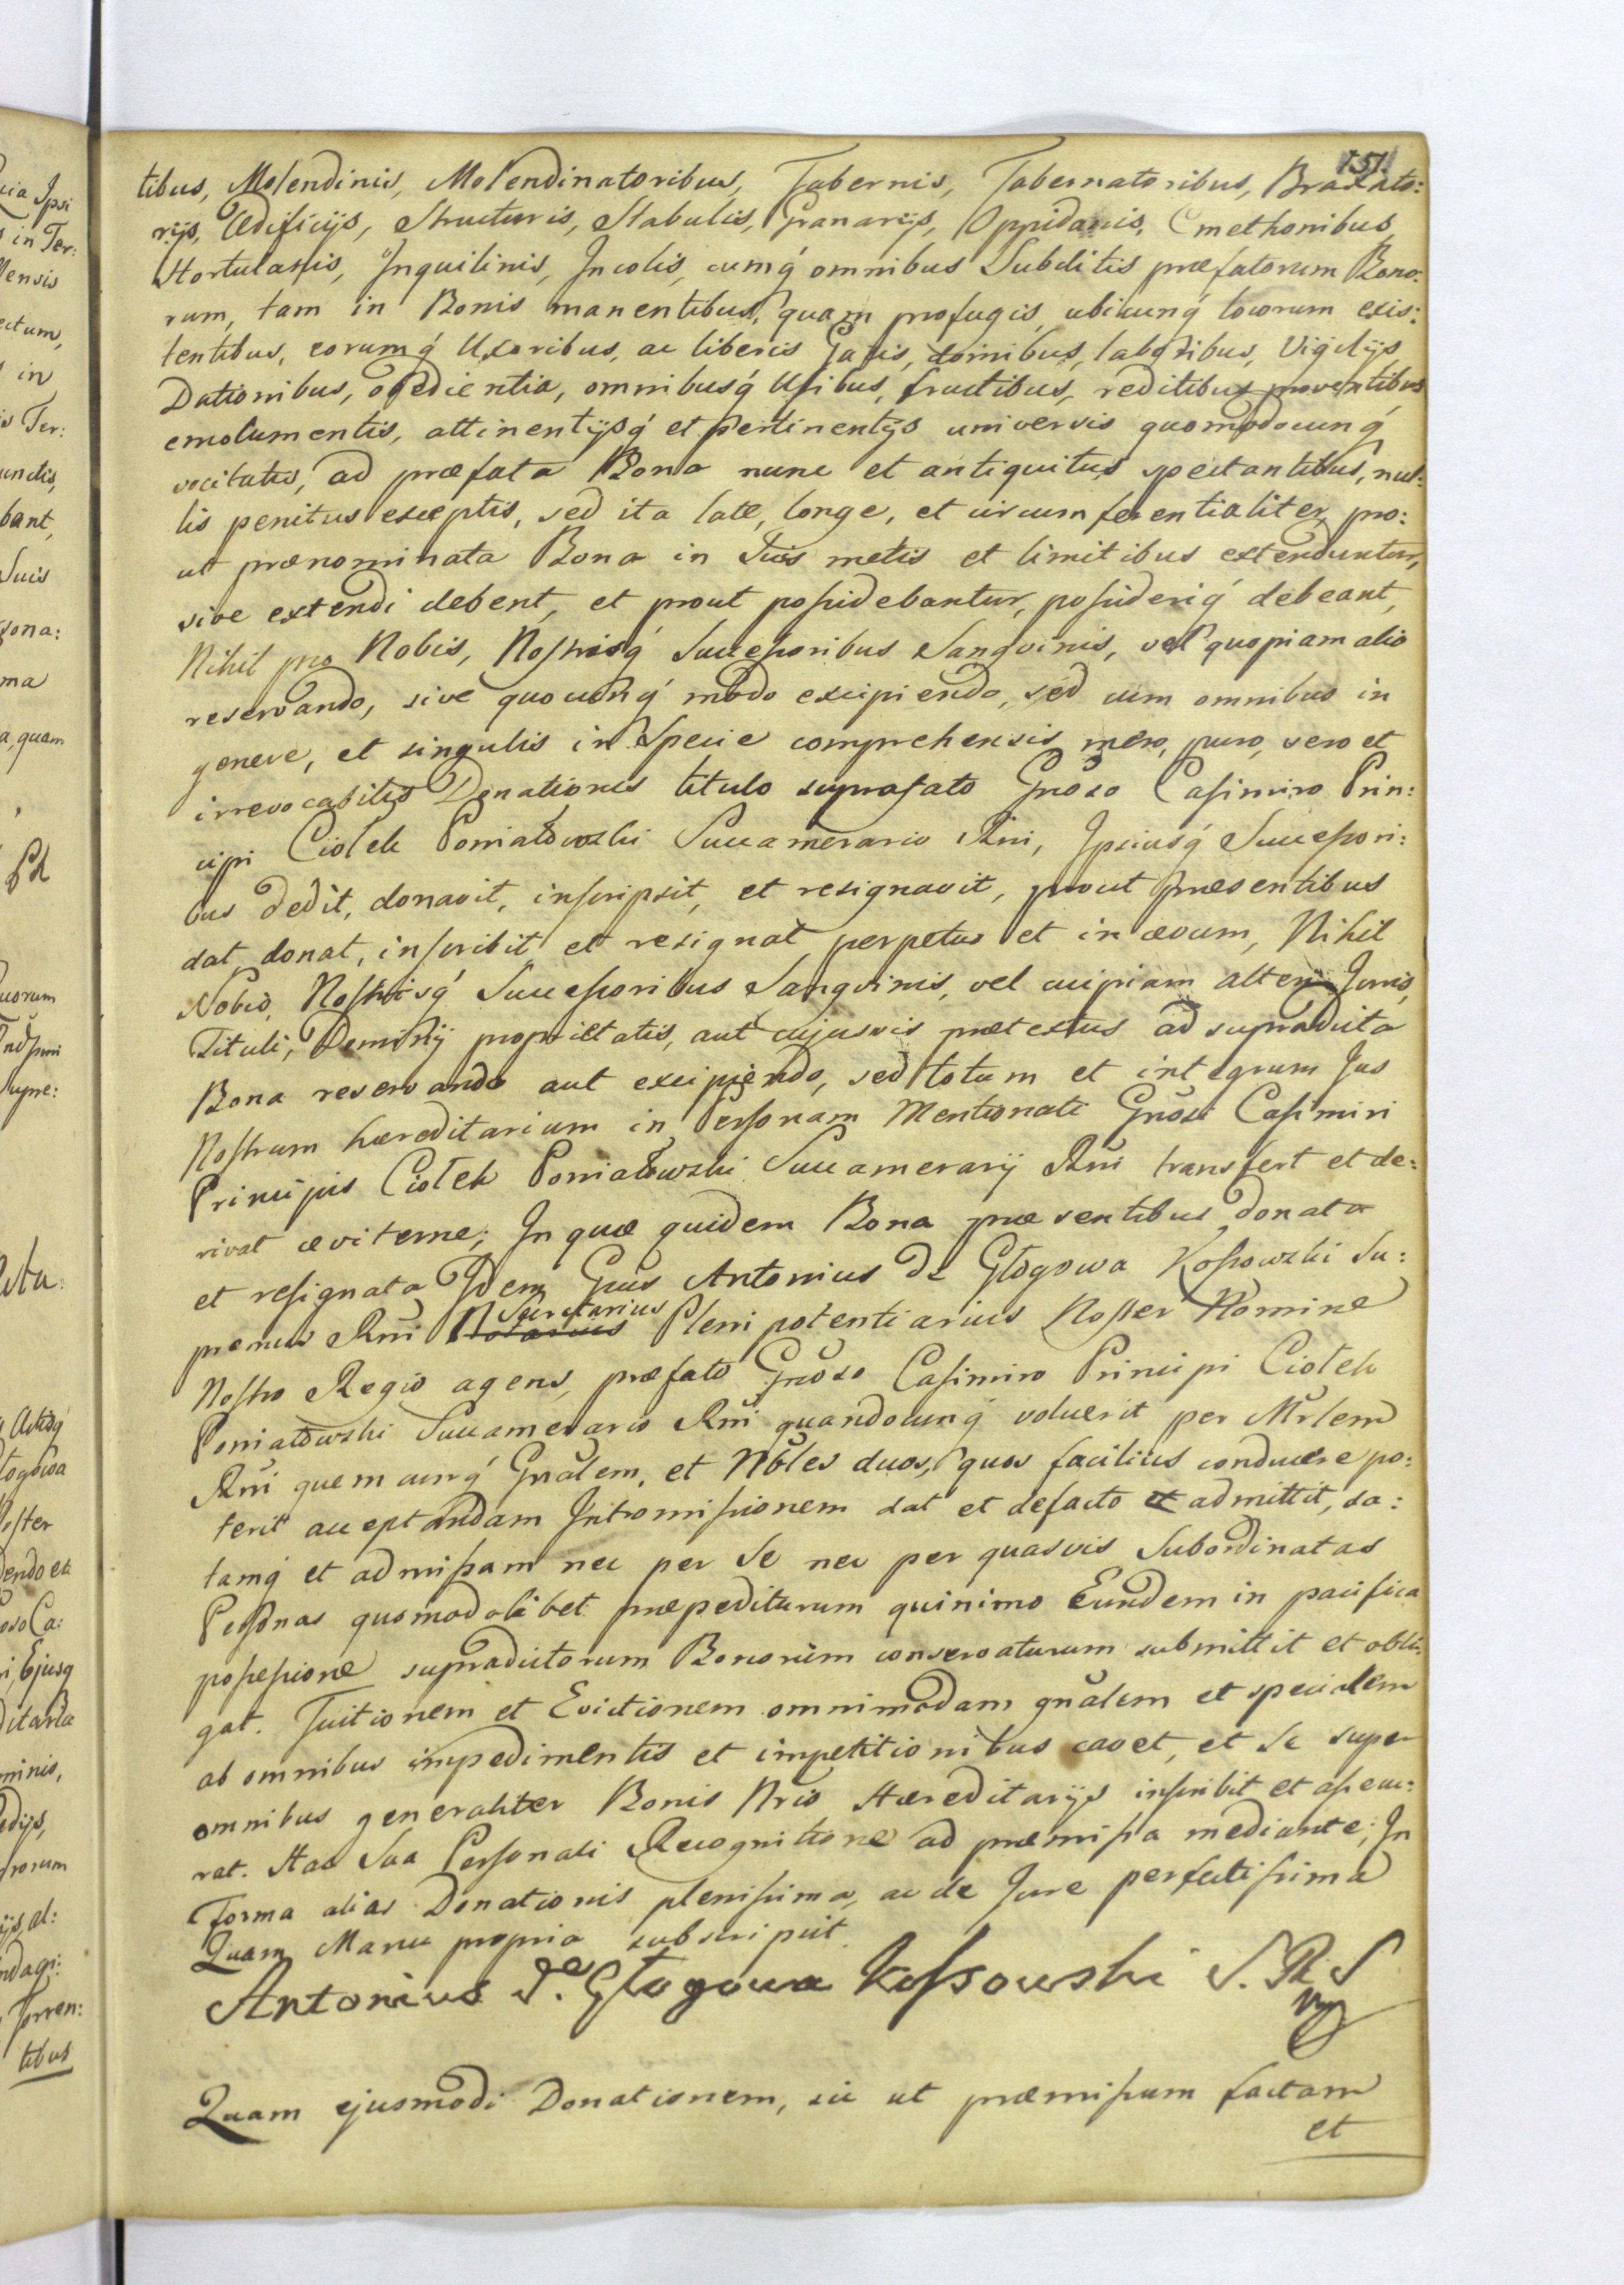 151.
tibus, Molendinis, Molendinatoribus, Tabernis, Tabernatoribus, Braxato:
rijs, Ædificijs, Structuris, Stabulis, Granarijs, Oppidanis, Cmethonibus,
Hortulanis, Inquilinis, Incolis, cumq́ omnibus Subditis præfatorum Bono:
rum, tam in Bonis manentibus, quam profugis, ubicunq́ locorum exis:
tentibus, eorumq́ Uxoribus, ac liberis Gazis, domibus, laboribus, Vigilijs,
Dationibus, obedientia, omnibusq́ Usibus, fructibus, reditibus proventibus
emolumentis, attinentijsq́ et pertinentijs universis quomodocunq́
vocitatis, ad præfata Bona nunc et antiquitus spectantibus, nul:
lis penitus exceptis, sed ita late, longe, et circumferentialiter, pro:
ut prænominata Bona in Suis metis et limitibus extenduntur,
sive extendi debent, et prout possidebantur, possideriq́ debeant,
Nihil pro Nobis, Nostrisq́ Successoribus Sangvinis, vel quopiam alio
reservando, sive quocunq́ modo excipiendo, sed cum omnibus in
genere, et singulis in Specie comprehensis mero, puro, vero et
irrevocabilis Donationis titulo suprafato Gnoso Casimiro Prin:
cipi Ciołek Poniatowski Succamerario Rni, Ipsiusq́ Successori:
bus dedit, donavit, inscripsit, et resignavit, prout præsentibus
dat, donat, inscribit et resignat perpetuo et in ævum, Nihil
Nobis, Nostrisq́ Successoribus Sangvinis, vel cuipiam alteri Juris,
Tituli, Dominij proprietatis, aut cujusvis prætextus ad supradicta
Bona reservando aut excipiendo, sed totum et integrum Jus
Nostrum hæreditarium in Personam Mentionati Gnosi Casimiri
Principis Ciołek Poniatowski Succamerarij Rni transfert et de:
rivat æviterne; In quæ quidem Bona præsentibus donata
et resignata Idem Gnus Antonius de Głogowa Kossowski Su:
premus Rni Notarius Secretarius Plenipotentiarius Noster Nomine
Nostro Regio agens, præfato Gnoso Casimiro Principi Ciołek
Poniatowski Succamerario Rni quandocunq́ voluerit per Mrlem
Rni quemcunq́ Gnalem, et Nbles duos, quos facilius conducere po:
terit acceptandam Intromissionem dat et defacto et admittit, da:
tamq́ et admissam nec per Se nec per quasvis Subordinatas
Personas quomodolibet præpediturum quinimo Eundem in pacifica
possessione supradictorum Bonorum conservaturum submittit et obli:
gat. Tuitionem et Evictionem omnimodam gnalem et specialem
ab omnibus impedimentis et impetitionibus cavet, et Se super
omnibus generaliter Bonis Nris Hæreditarijs inscribit et assecu:
rat. Hac Sua Personali Recognitione ad præmissa mediante; In
Forma alias Donationis plenissima, ac de Jure perfectissima
Quam Manu propria subscripsit.
Antonius de Głogowa Kossowski S.R.S
mp
Quam ejusmodi Donationem, sic ut præmissum factam
et